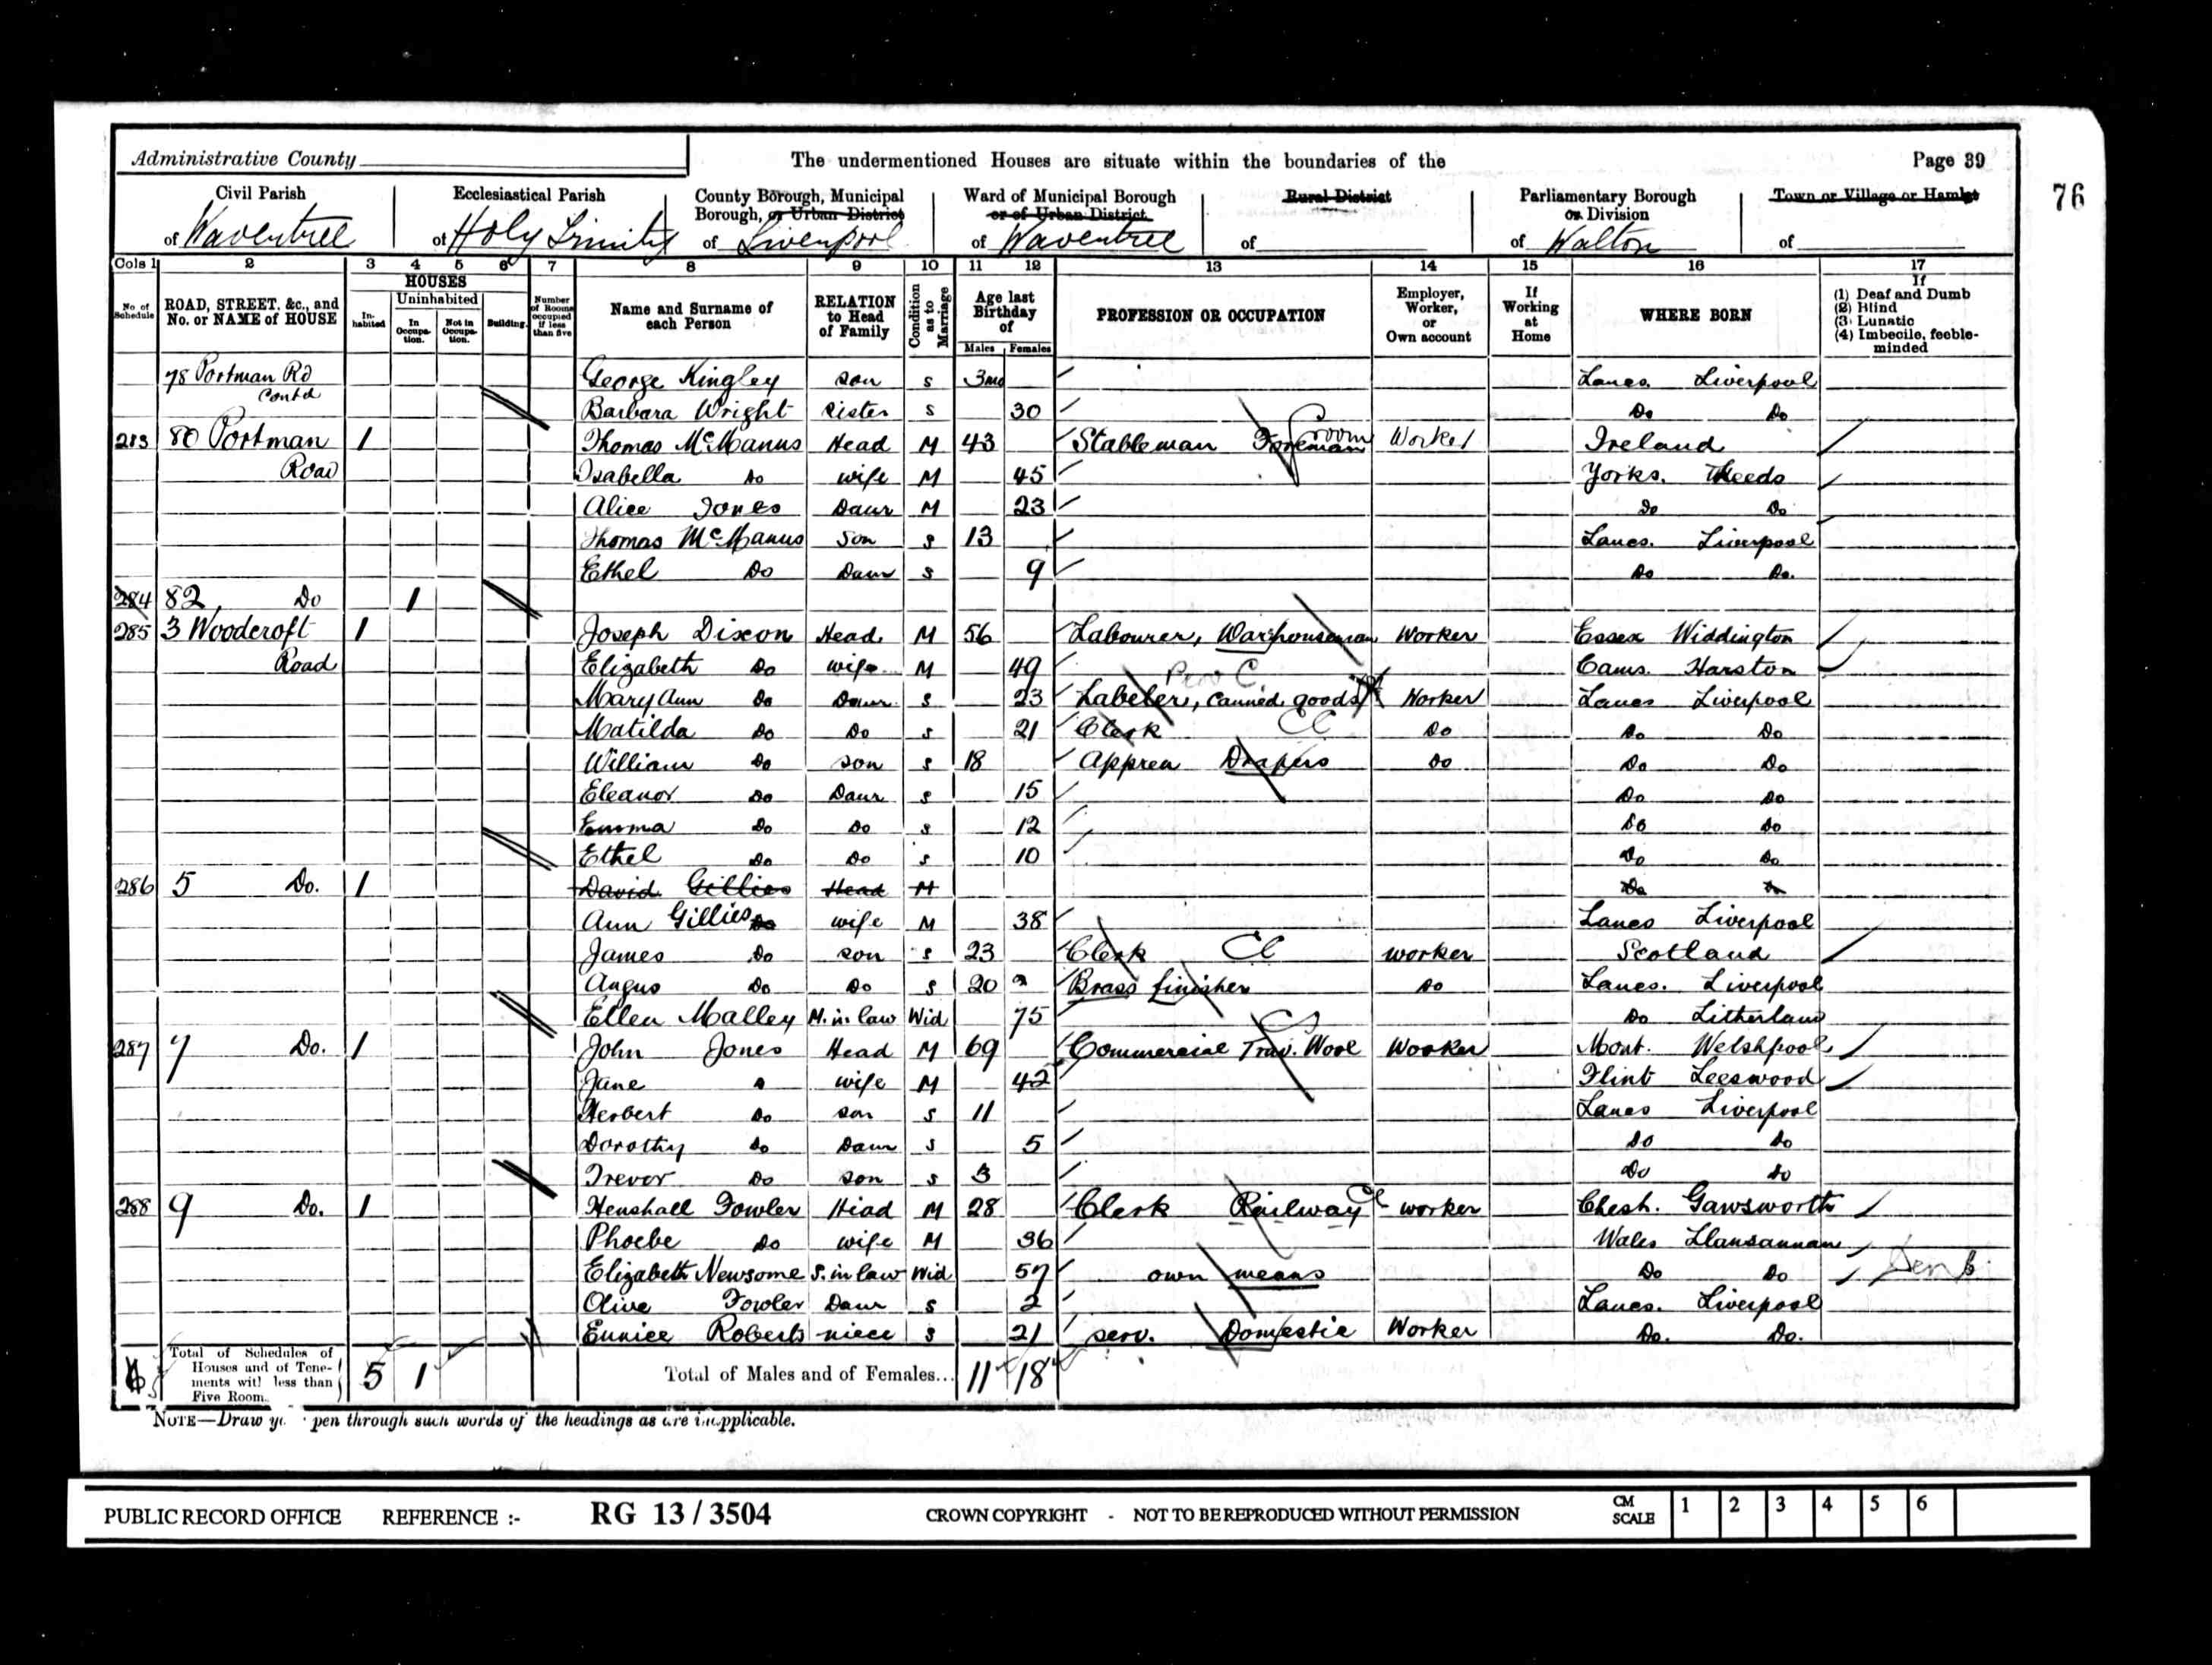 Administrative County The undermentioned Houses are situate within the boundaries of the Page 39
76
Civil Parish of Wavertree
Ecclesiastical Parish of Holy Trinity
County Borough, Municipal Borough, or Urban District of Liverpool
Ward of Municipal Borough or of Urban District of Wavertree
Rural District of
Parliamentary Borough or Division of Walton
Town or Village or Hamlet of
Cols 1 2 3 4 5 6 7 8 9 10 11 12 13 14 15 16 17
No. of Schedule
ROAD, STREET, &c., and No. or NAME of HOUSE
HOUSES
In-habited
Uninhabited
In Occupa-tion.
Not in Occupa-tion.
Building.
Number of Rooms occupied if less than five
Name and Surname of each Person
RELATION to Head of Family
Condition as to Marriage
Age last Birthday of
Males Females
PROFESSION OR OCCUPATION
Employer, Worker, or Own account
If Working at Home
WHERE BORN
If
(1) Deaf and Dumb
(2) Blind
(3) Lunatic
(4) Imbecile, feeble-minded
78 Portman Rd contd George Kingley son s 3mo Lancs. Liverpool
Barbara Wright sister s 30 Do Do
283 80 Portman Road 1 Thomas McManus Head M 43 Stableman Foreman Groom Worker Ireland
Isabella Do wife M 45 Yorks. Leeds
Alice Jones Daur M 23 Do Do
Thomas McManus Son s 13 Lancs. Liverpool
Ethel Do Daur s 9 Do Do.
284 82 Do 1
285 3 Woodcroft Road 1 Joseph Dixon Head. M 56 Labourer, Warehouseman Worker Essex Widdington
Elizabeth Do wife M 49 Cams. Harston
Mary Ann Do Daur. s 23 Labeler, canned goods Worker Lancs Liverpool
Matilda Do Do s 21 Clerk Cl Do Do Do
William Do son s 18 Appren Drapers Do Do Do
Eleanor Do Daur s 15 Do Do
Emma Do Do s 12 Do Do
Ethel Do Do s 10 Do Do
286 5 Do. 1 David Gillies Head M Do Do
Ann Gillies Do wife M 38 Lancs Liverpool
James Do son s 23 Clerk Cl worker Scotland
Angus Do Do s 20 Brass finisher Do Lancs. Liverpool
Ellen Malley M. in. law Wid 75 Do Litherland
287 7 Do. 1 John Jones Head M 69 Commercial Trav. Wool Worker Mont. Welshpool
Jane Do wife M 42 Flint Leeswood
Herbert Do son s 11 Lancs Liverpool
Dorothy Do Daur s 5 Do Do
Trevor Do son s 3 Do Do
288 9 Do. 1 Henshall Fowler Head M 28 Clerk Railway Cl worker Chesh. Gawsworth
Phoebe Do wife M 36 Wales Llansannan
Elizabeth Newsome S. in law Wid 57 own means Do Do Denb
Olive Fowler Daur s 2 Lancs. Liverpool
Eunice Roberts niece s 21 serv. Domestic Worker Do. Do.
Total of Schedules of Houses and of Tene-ments with less than Five Rooms 5 1 Total of Males and of Females... 11 18
NOTE—Draw your pen through such words of the headings as are inapplicable.
PUBLIC RECORD OFFICE REFERENCE :- RG 13 / 3504 CROWN COPYRIGHT - NOT TO BE REPRODUCED WITHOUT PERMISSION CM SCALE 1 2 3 4 5 6